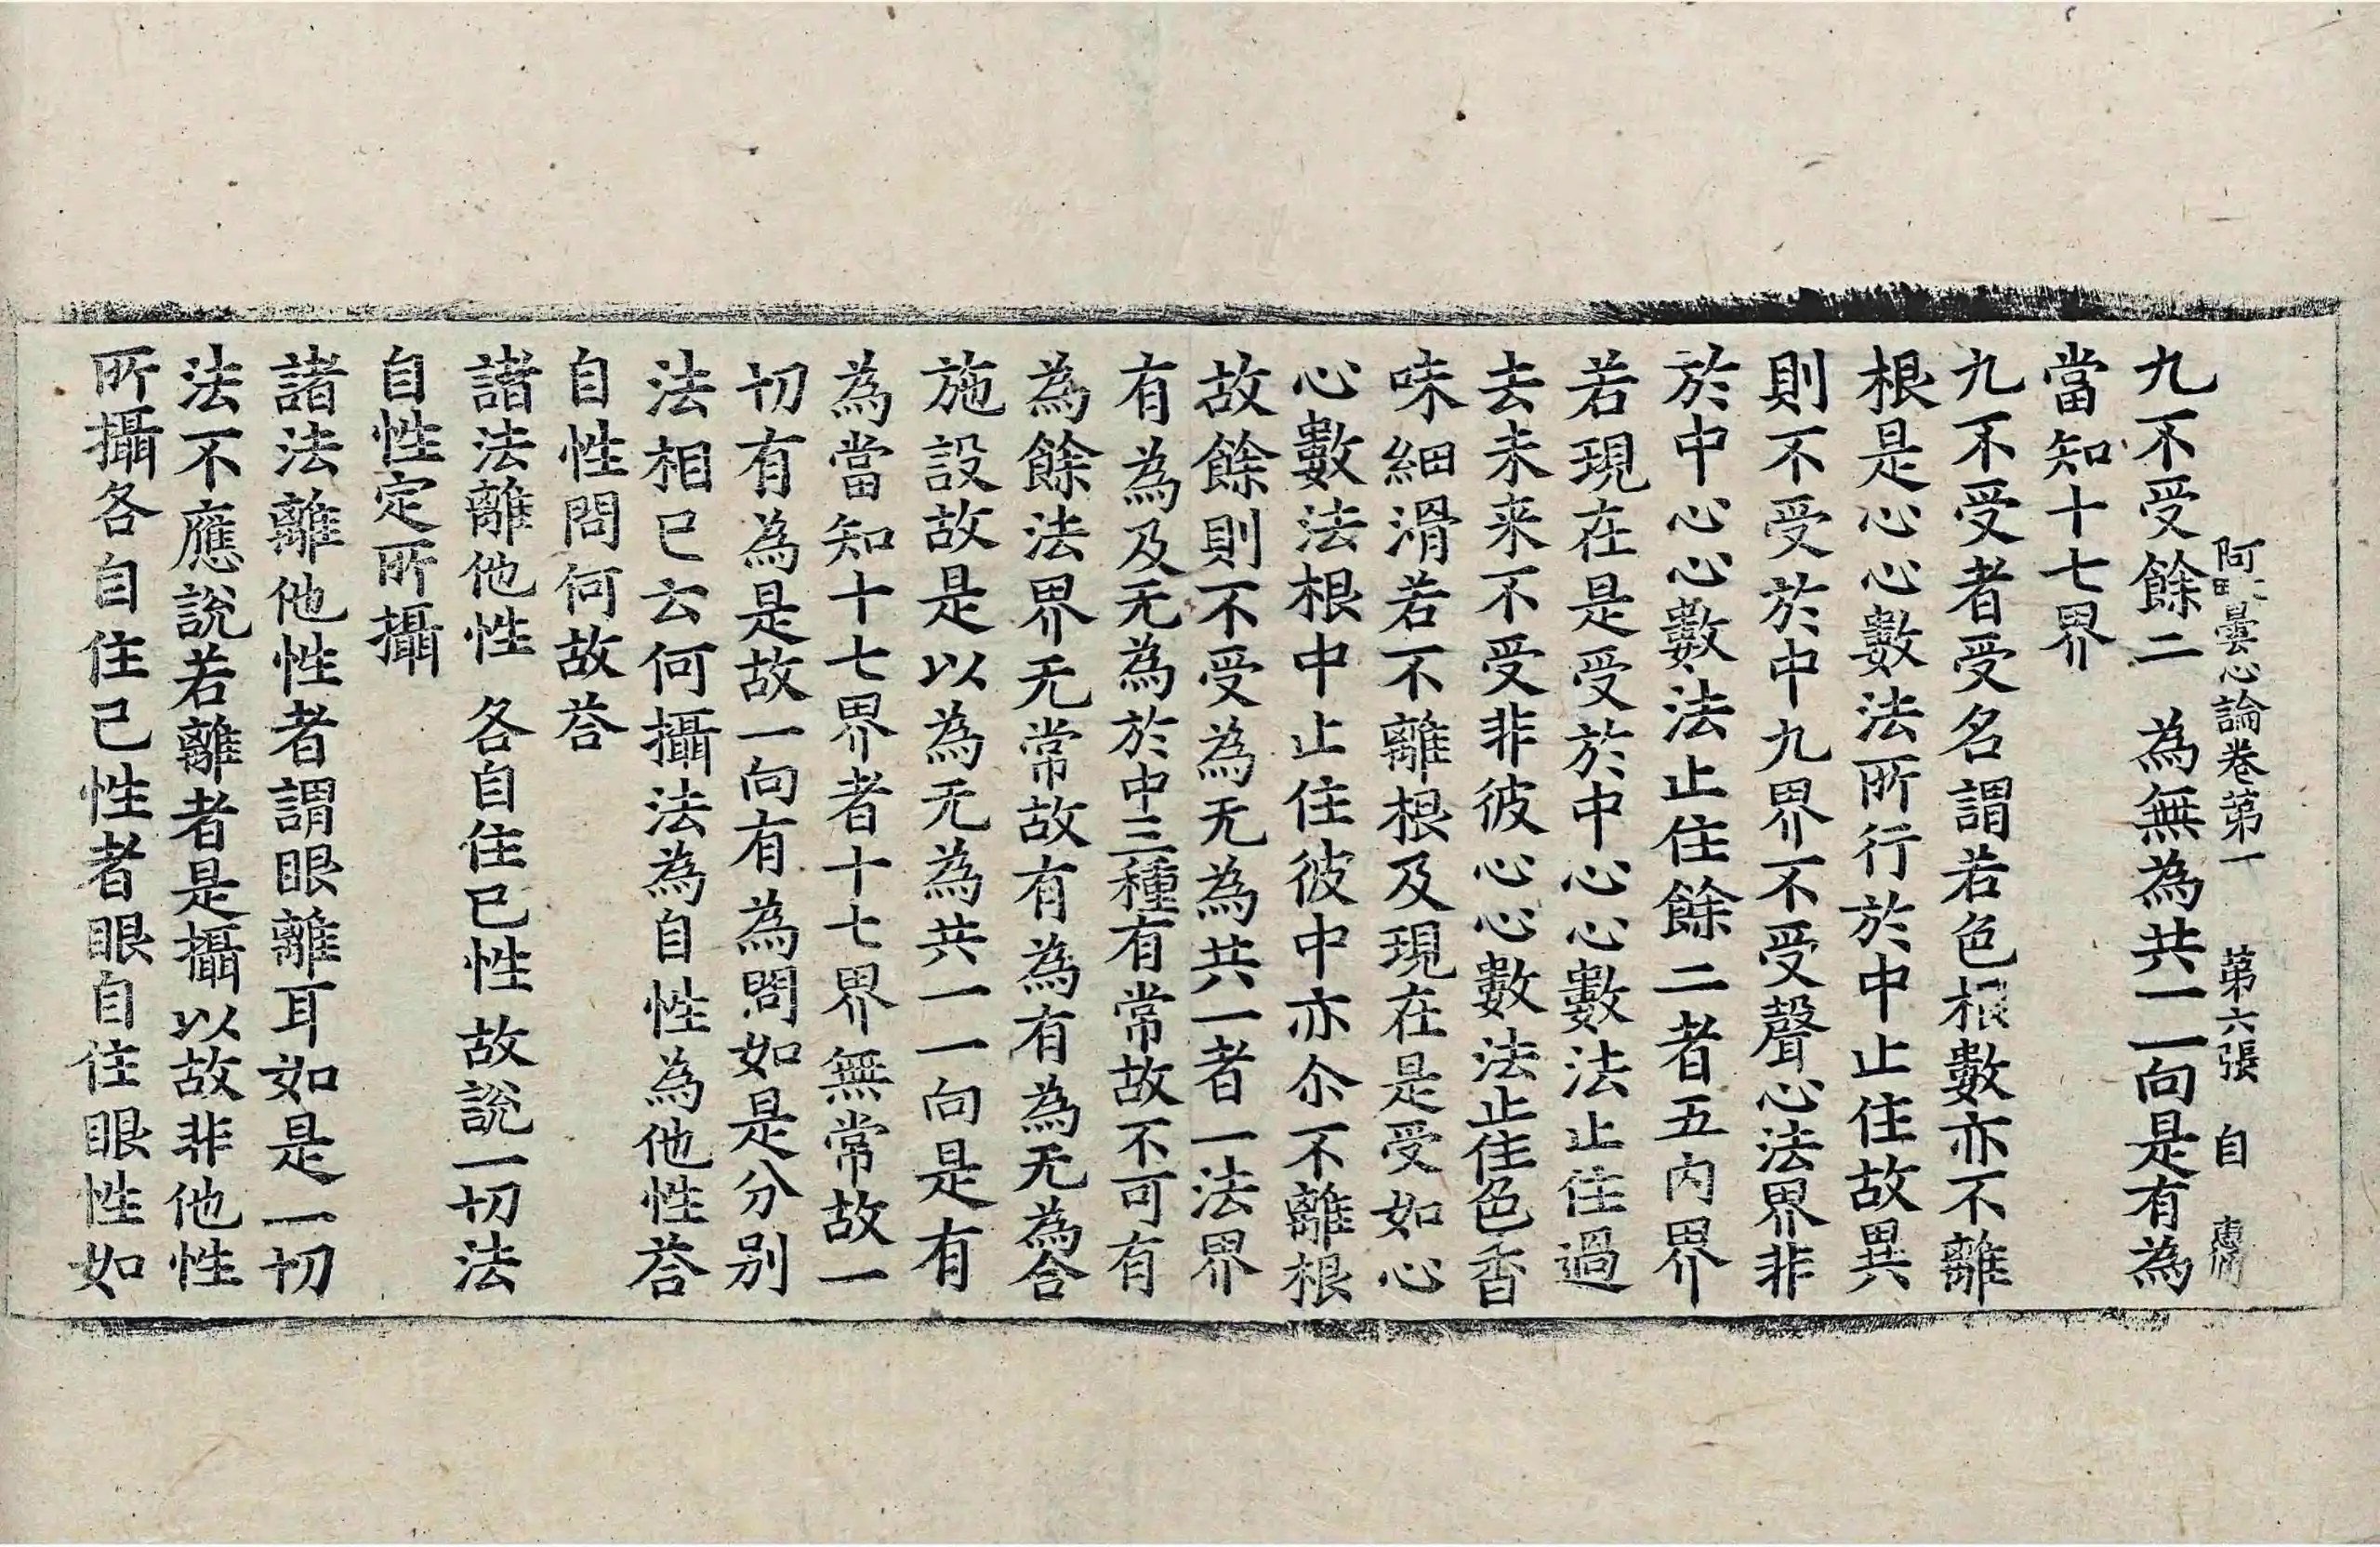 阿毗曇心論卷第一 第六張 自
九不受餘二 為無為共一 一向是有為
當知十七界
九不受者受名謂若色根數亦不離
根是心心數法所行於中止住故異
則不受於中九界不受聲心法界非
於中心心數法止住餘二者五內界
若現在是受於中心心數法止住過
去未来不受非彼心心數法止住色香
味細滑若不離根及現在是受如心
心數法根中止住彼中亦尒不離根
故餘則不受為无為共一者一法界
有為及无為於中三種有常故不可有
為餘法界无常故有為有為无為合
施設故是以為无為共一一向是有
為當知十七界者十七界無常故一
切有為是故一向有為問如是分別
法相已云何攝法為自性為他性荅
自性問何故荅
諸法離他性 各自住已性 故說一切法
自性定所攝
諸法離他性者謂眼離耳如是一切
法不應說若離者是攝以故非他性
所攝各自住己性者眼自住眼性如